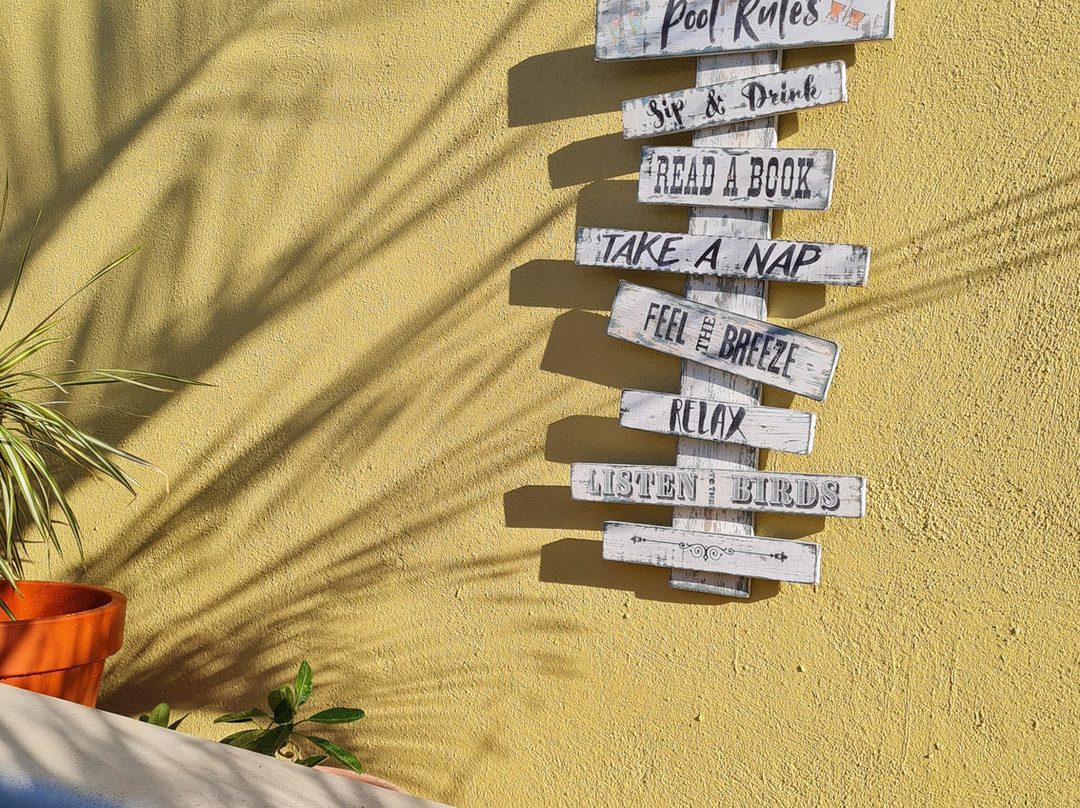 Pool Rules
Sip & Drink
READ A BOOK
TAKE A NAP
FEEL THE BREEZE
RELAX
LISTEN TO THE BIRDS